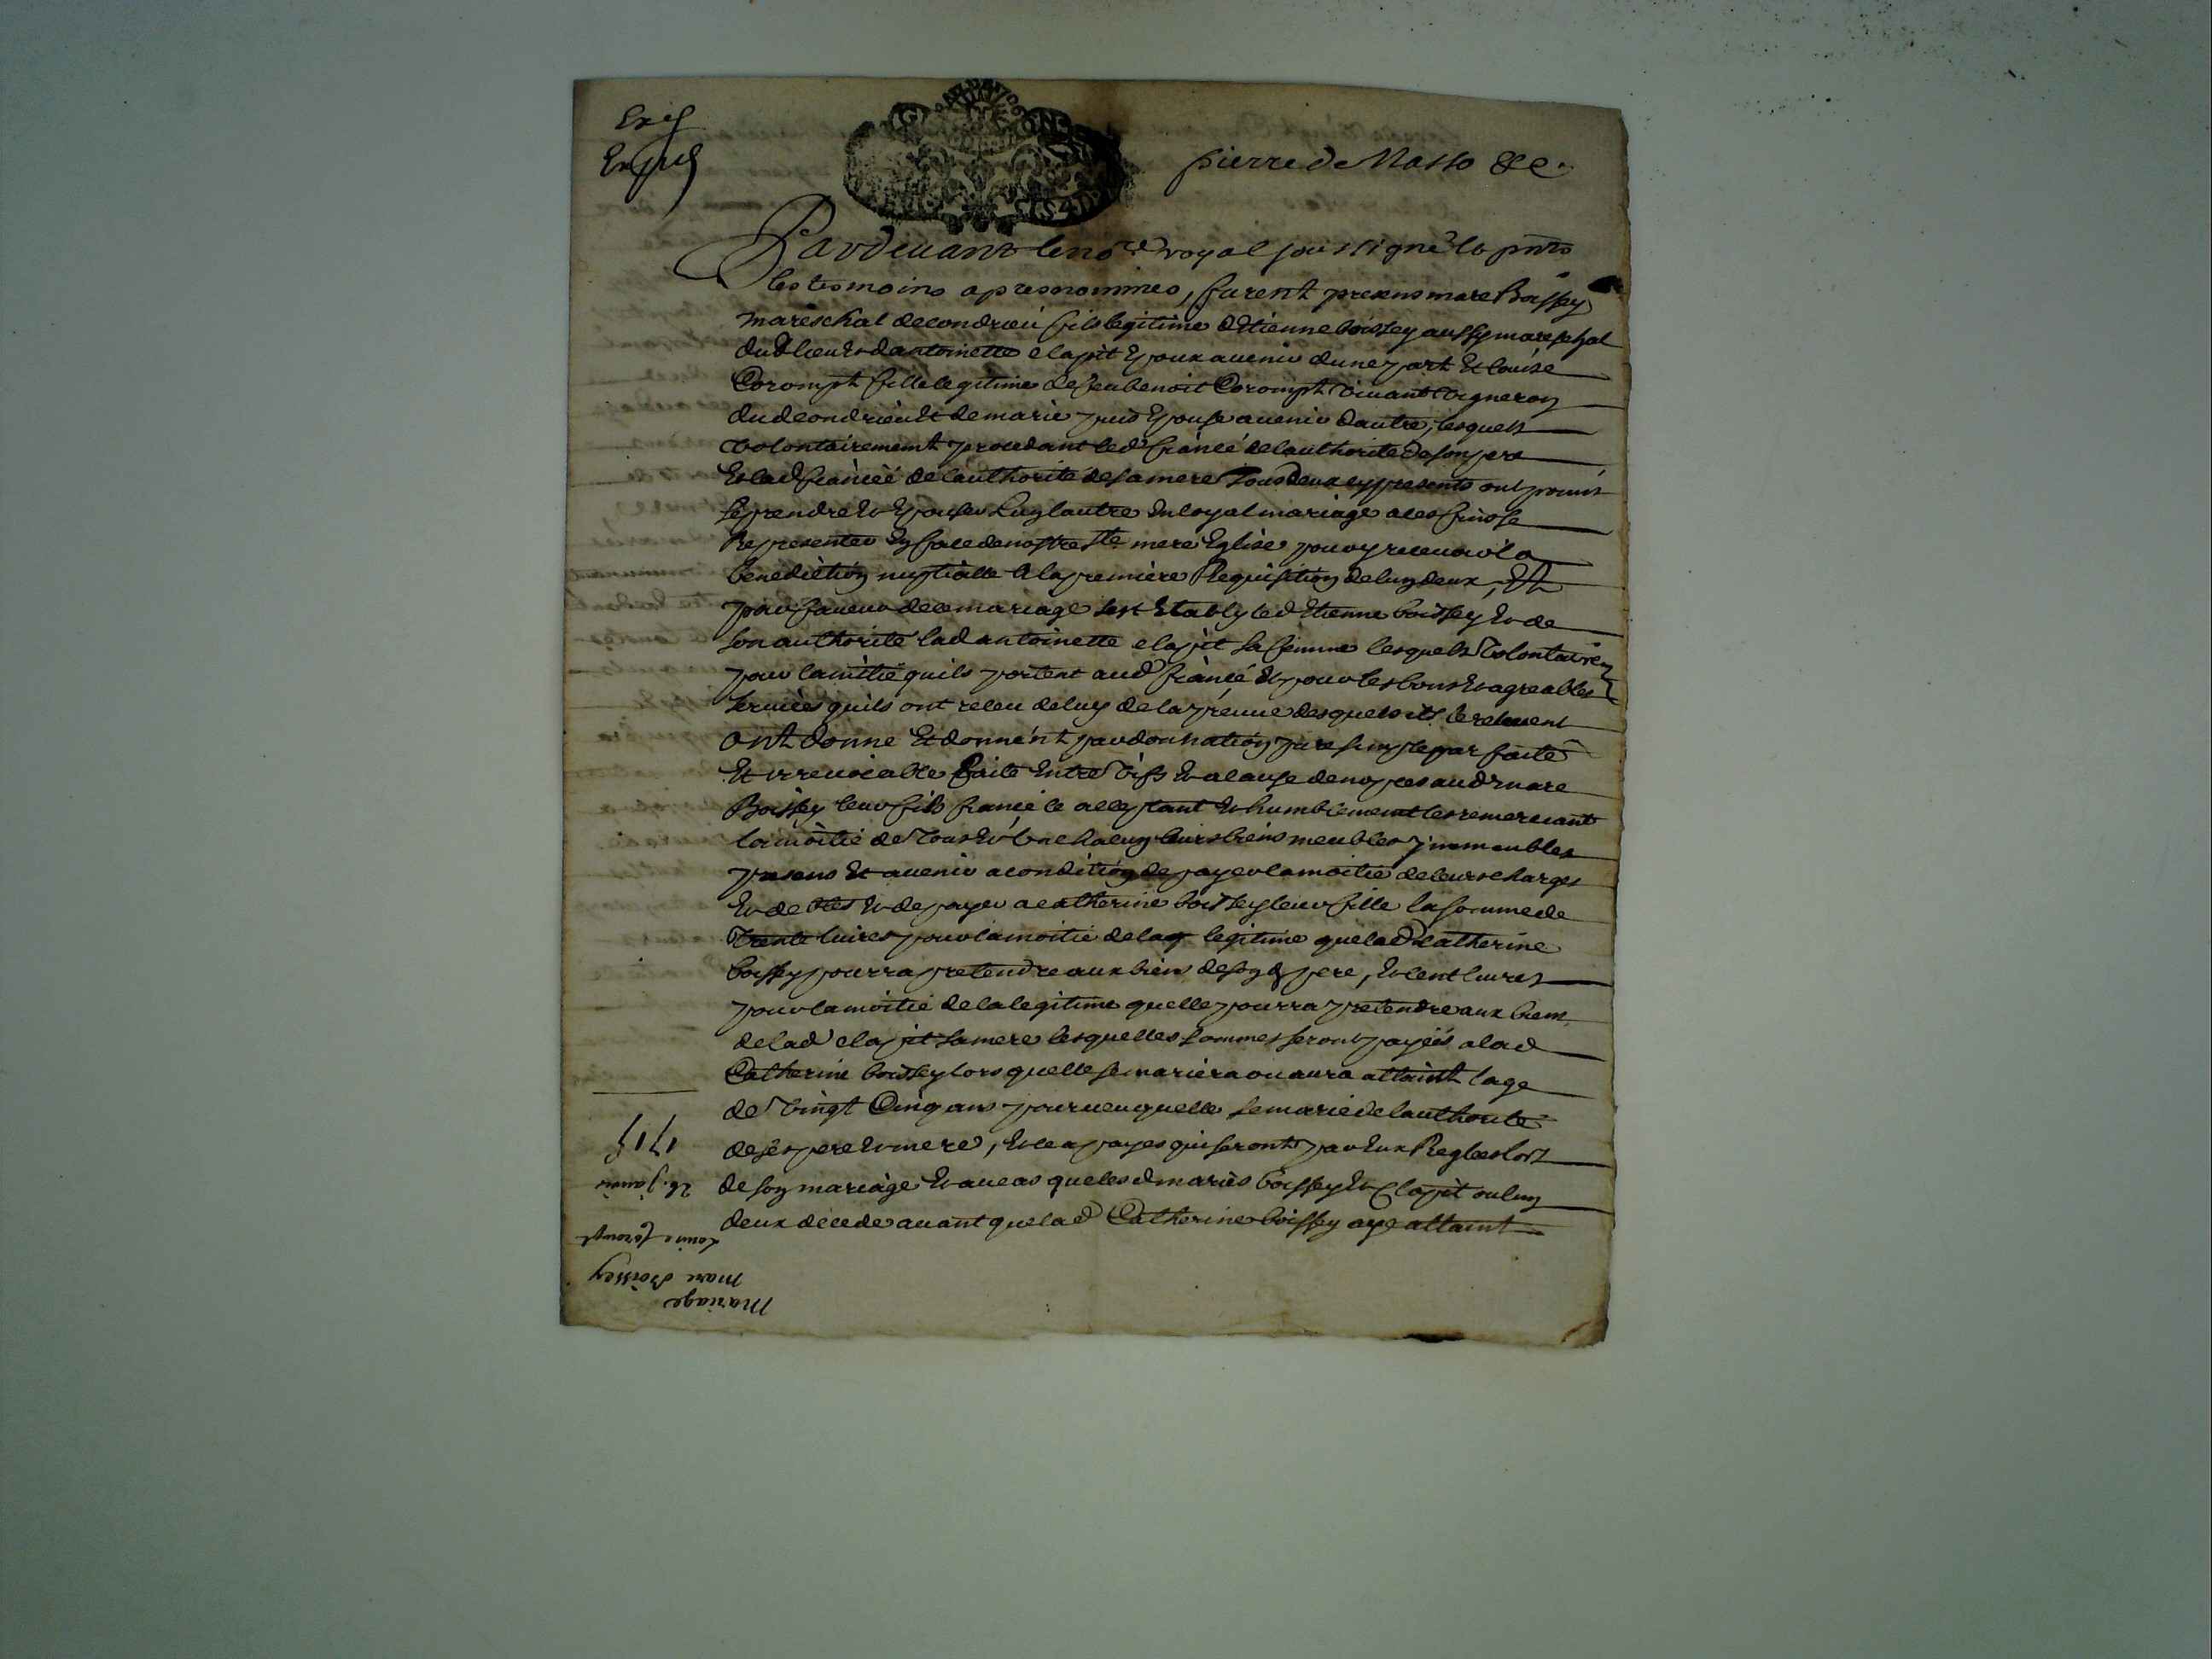 Exp
Exp
pierre de Masso &c.
Pardevant le no.re royal soussigné et pnts
les tesmoins apres nommes, furent presens marc Boissey
mareschal de condrieu fils legitime d'Etienne boissey aussy mareschal
dud lieu et d'antoinette clapit Epoux avenir dune part Et louise
Corompt fille legitime de feu benoit Corompt vivant vigneron
dud condrieu Et de marie Epouse avenir dautre, lesquels
volontairement procedant led fiancé de lauthorité de son pere
Et lad fiancéé de lauthorité de sa mere Tous deux cy presents ont promis
se prendre et Epouser Lung lautre En loyal mariage a ces fins se
Representer En face de nostre Ste mere Eglise pour y recevoir la
benediction nuptialle A la premiere Requisition de lung deux, Et
pour faveur de ce mariage sest Etably led Etienne boissey Et de
son authorité lad antoinette clapit sa femme lesquels Volontairem
pour lamitié quils portent aud fiancé Et pour les bons Et agreables
services quils ont receu de luy de la preuve desquels ils le relevent
ont donne Et donnent par donnation pure simple parfaite
Et irrevocable faite Entre vifs Et a cause de nopces aud marc
Boissey leur fils fiancé ce acceptant Et humblement les remerciant
la moitié de Tous Et Un chacung leurs biens meubles immeubles
presens Et avenir a condition de payer la moitié de leurs charges
Et debtes Et de payer a catherine boissey leur fille la somme de
Trente livres pour la moitié de la legitime que lad Catherine
boissey pourra pretendre aux biens de son pere, Et cent livres
pour la moitié de la legitime quelle pourra pretendre aux biens
de lad clapit sa mere lesquelles sommes seront payéés a lad
Catherine boissey lors quelle se mariera ou aura attaint lage
de Vingt Cinq ans pourveu quelle se marie de lauthorité
de ses pere Et mere, Et aux payes qui seront par Eux Reglees lors
de son mariage Et au cas que lesd mariés boissey Et Clapit ou lung
deux decede avant que lad Catherine boissey aye attaint
Mariage
Marc Boissey
Louise Corompt
26. janvier
1715